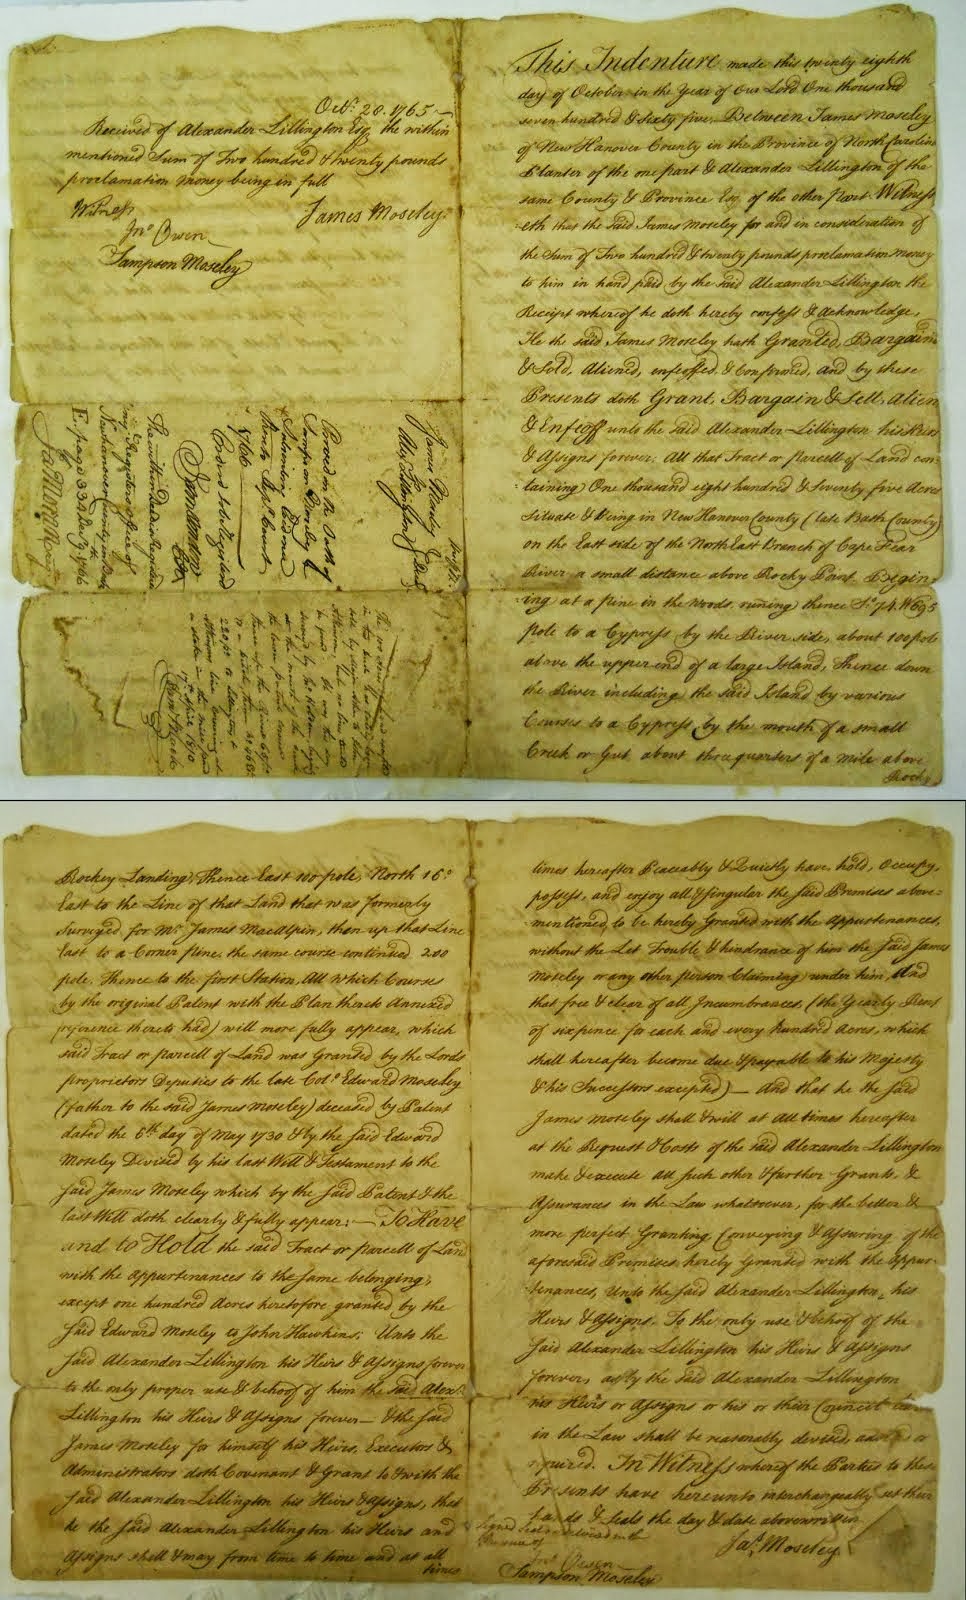 This Indenture made this twenty eighth
day of October in the Year of Our Lord One thousand
seven hundred & Sixty five, Between James Moseley
of New Hanover County in the Province of North Carolina
Planter of the one part & Alexander Lillington of the
same County & Province Esq. of the other Part. Witness
eth that the said James Moseley for and in consideration of
the Sum of Two hundred & twenty pounds proclamation money
to him in hand paid by the said Alexander Lillington the
Receipt whereof he doth hereby confess & acknowledge,
He the said James Moseley hath Granted, Bargain'd
& Sold, Aliened, enfeoffed, & Confirmed, and by these
Presents doth Grant, Bargain & Sell, Alien,
& Enfeoff unto the said Alexander Lillington his Heirs
& Assigns forever. All that Tract or parcell of Land con-
taining One thousand eight hundred & Seventy five Acres
Situate & being in New Hanover County (late Bath County)
on the East side of the North East Branch of Cape Fear
River a small distance above Rocky Point. Begin
ing at a pine in the woods, runing thence So. 74. W 695
pole to a Cypress by the River side, about 100 pole
above the upper end of a large Island, Thence down
the River including the said Island by various
Courses to a Cypress by the mouth of a small
Creek or Gut about three quarters of a mile above
Rocky
Octr. 28. 1765
Received of Alexander Lillington Esq. the within
mentioned Sum of Two hundred & twenty pounds
proclamation money being in full
Witness
James Moseley.
Jno. Owen
Sampson Moseley
James Moseley
to
Alexr. Lillington
Deed
Proved on the Oath of
Sampson Moseley
1766
Rockey Landing, Thence East 100 pole, North 16°
East to the Line of that Land that was formerly
Surveyed for Mr. James MacAlpin, then up that Line
East to a Corner Pine, the same course continued 200
pole, Thence to the first Station, All which Courses
by the original Patent with the Plan thereto Annexed
(reference thereto had) will more fully appear, which
said Tract or parcell of Land was Granted by the Lords
proprietors Deputies to the late Colo. Edward Moseley
(father to the said James Moseley) deceased by Patent
dated the 6th day of May 1730 & by the said Edward
Moseley Devised by his last Will & Testament to the
said James Moseley which by the said Patent & the
last Will doth clearly & fully appear: - To Have
and to Hold the said Tract or parcell of Land
with the appurtenances to the same belonging,
except one hundred Acres heretofore granted by the
said Edward Moseley to John Hawkins; Unto the
said Alexander Lillington his Heirs & Assigns forever
to the only proper use & behoof of him the said Alexr.
Lillington his Heirs & Assigns forever - & the said
James Moseley for himself his Heirs, Executors &
Administrators doth Covenant & Grant to & with the
said Alexander Lillington his Heirs & Assigns, that
he the said Alexander Lillington his Heirs and
Assigns shall & may from time to time and at all
times
times hereafter Peaceably & Quietly have, hold, occupy,
possess, and enjoy all & singular the said Premises above-
mentioned, to be hereby Granted with the appurtenances,
without the Let Trouble & hindrance of him the said James
Moseley or any other person Claiming under him, And
that free & clear of all Incumbrances, (the Yearly Rent
of sixpence for each and every hundred Acres, which
shall hereafter become due & payable to his Majesty
& his Successors excepted) - And that he the said
James Moseley shall & will at all times hereafter
at the Request & Costs of the said Alexander Lillington
make & execute all such other & further Grants, &
Assurances in the Law whatsoever, for the better &
more perfect Granting, Conveying & Assuring of the
aforesaid Premises, hereby Granted with the Appur-
tenances, Unto the said Alexander Lillington, his
Heirs & Assigns, To the only use & behoof of the
said Alexander Lillington his Heirs & Assigns
forever, as by the said Alexander Lillington
his Heirs or Assigns or his or their Council
in the Law shall be reasonably devised, advised or
required. In Witness whereof the Parties to these
Presents have hereunto interchangeably set their
hands & Seals the day & date abovewritten
Signed Sealed & delivered in the
Presence of
Jas. Moseley
Jno. Owen
Sampson Moseley